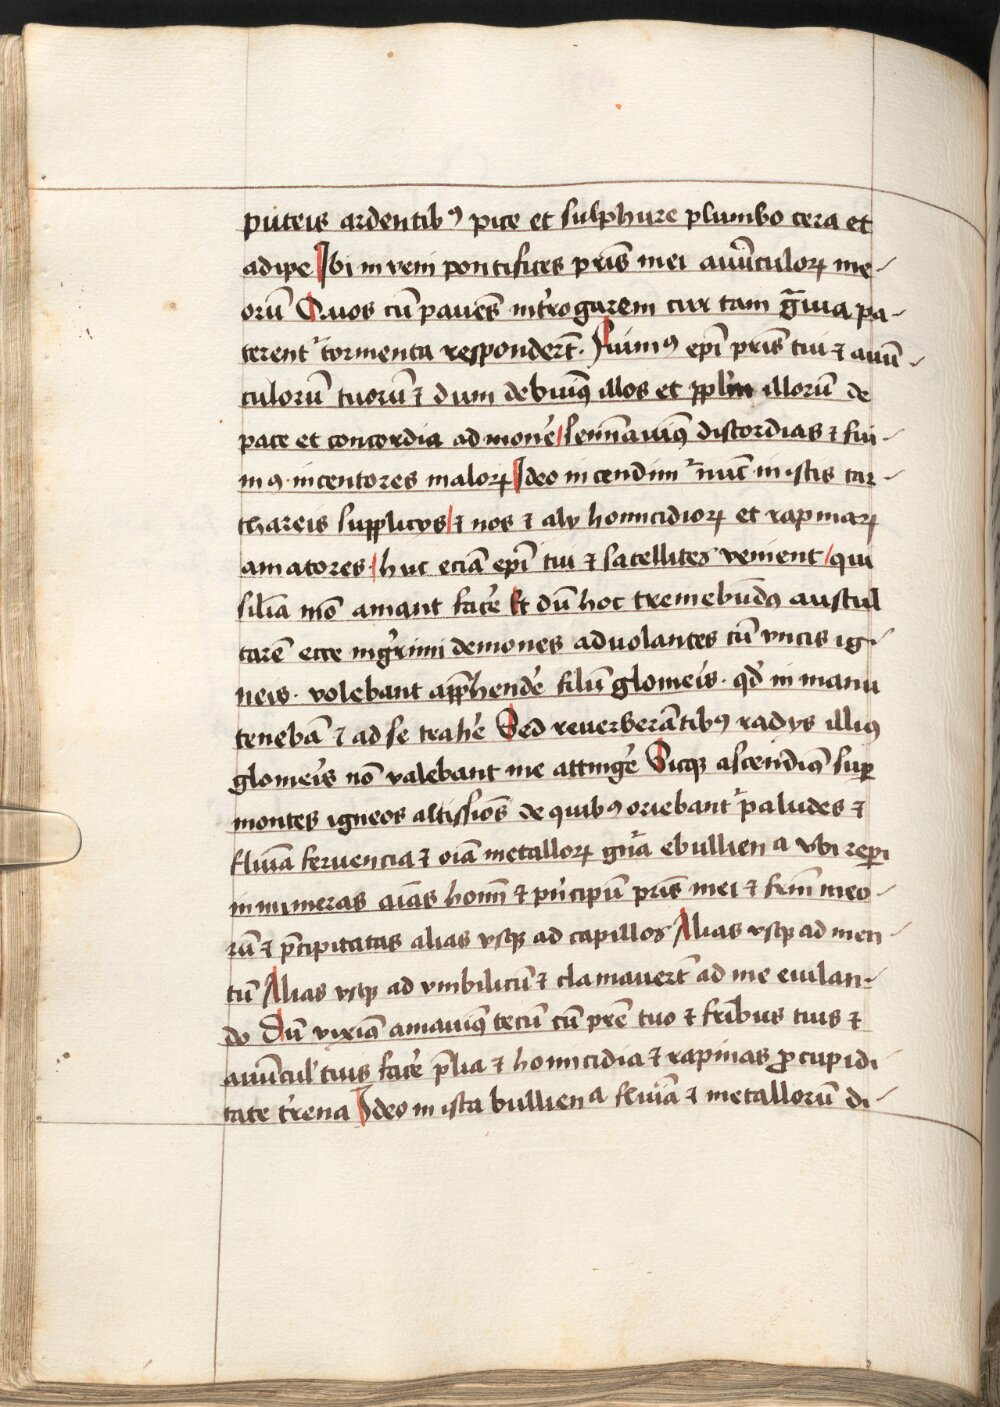 puteis ardentibꝰ pice et sulphure plumbo cera et
adipe Ibi inveni pontifices pr̄is mei avūculoꝝ me-
orū Quos cū pavēs int̉rogarem cur tam gͣvia pa-
terentᷣ tormenta respondert̄. Fuimꝰ epī pr̄is tui ⁊ avū-
culorū tuorū ⁊ dum debuimꝰ illos et ppl'm illorū de
pace et concordia admone͛ / seminavimꝰ discordias ⁊ fui-
mꝰ incentores maloꝝ Ideo incendimᷣ nūc in istis tar-
thareis supplicijs / ⁊ nos ⁊ alij homicidioꝝ et rapinaꝝ
amatores / huc eciā epī tui ⁊ satellites venient / qui
silīa mō amant face͛ Et dū hoc tremebūdꝰ auscul
tarē ecce nigͥrimi demones advolantes cū vncis ig-
neis. volebant app̄hende͛ filū glome͛is. qd̓ in manu
tenebā ⁊ ad se trahe͛ Sed reverberātibꝰ radijs illiꝰ
glome͛is nō valebant me attinge͛ Sicqꝫ ascendimꝰ suꝑ
montes igneos altissīos de quibꝰ oriebantᷣ paludes ⁊
flu͛ia fervencia ⁊ oīa metalloꝝ gn̄a ebullienᵃ vbi reꝑi
innumeras aīas homī ⁊ pͥncipū pr̄is mei ⁊ fr̄m meo-
rū ⁊ p̄cipitatas alias vsqꝫ ad capillos Alias vsqꝫ ad men-
tū Alias vsqꝫ ad vmbilicū ⁊ clamavert̄ ad me eiulan-
do Dū viximꝰ amavimꝰ tecū cū pr̄e tuo ⁊ fr̄ibus tuis ⁊
avūcul' tuis face͛ p̄lia ⁊ homicidia ⁊ rapinas ꝓ cupidi
tate t̉rena Ideo in ista bullienᵃ flu͛ia ⁊ metallorū di-